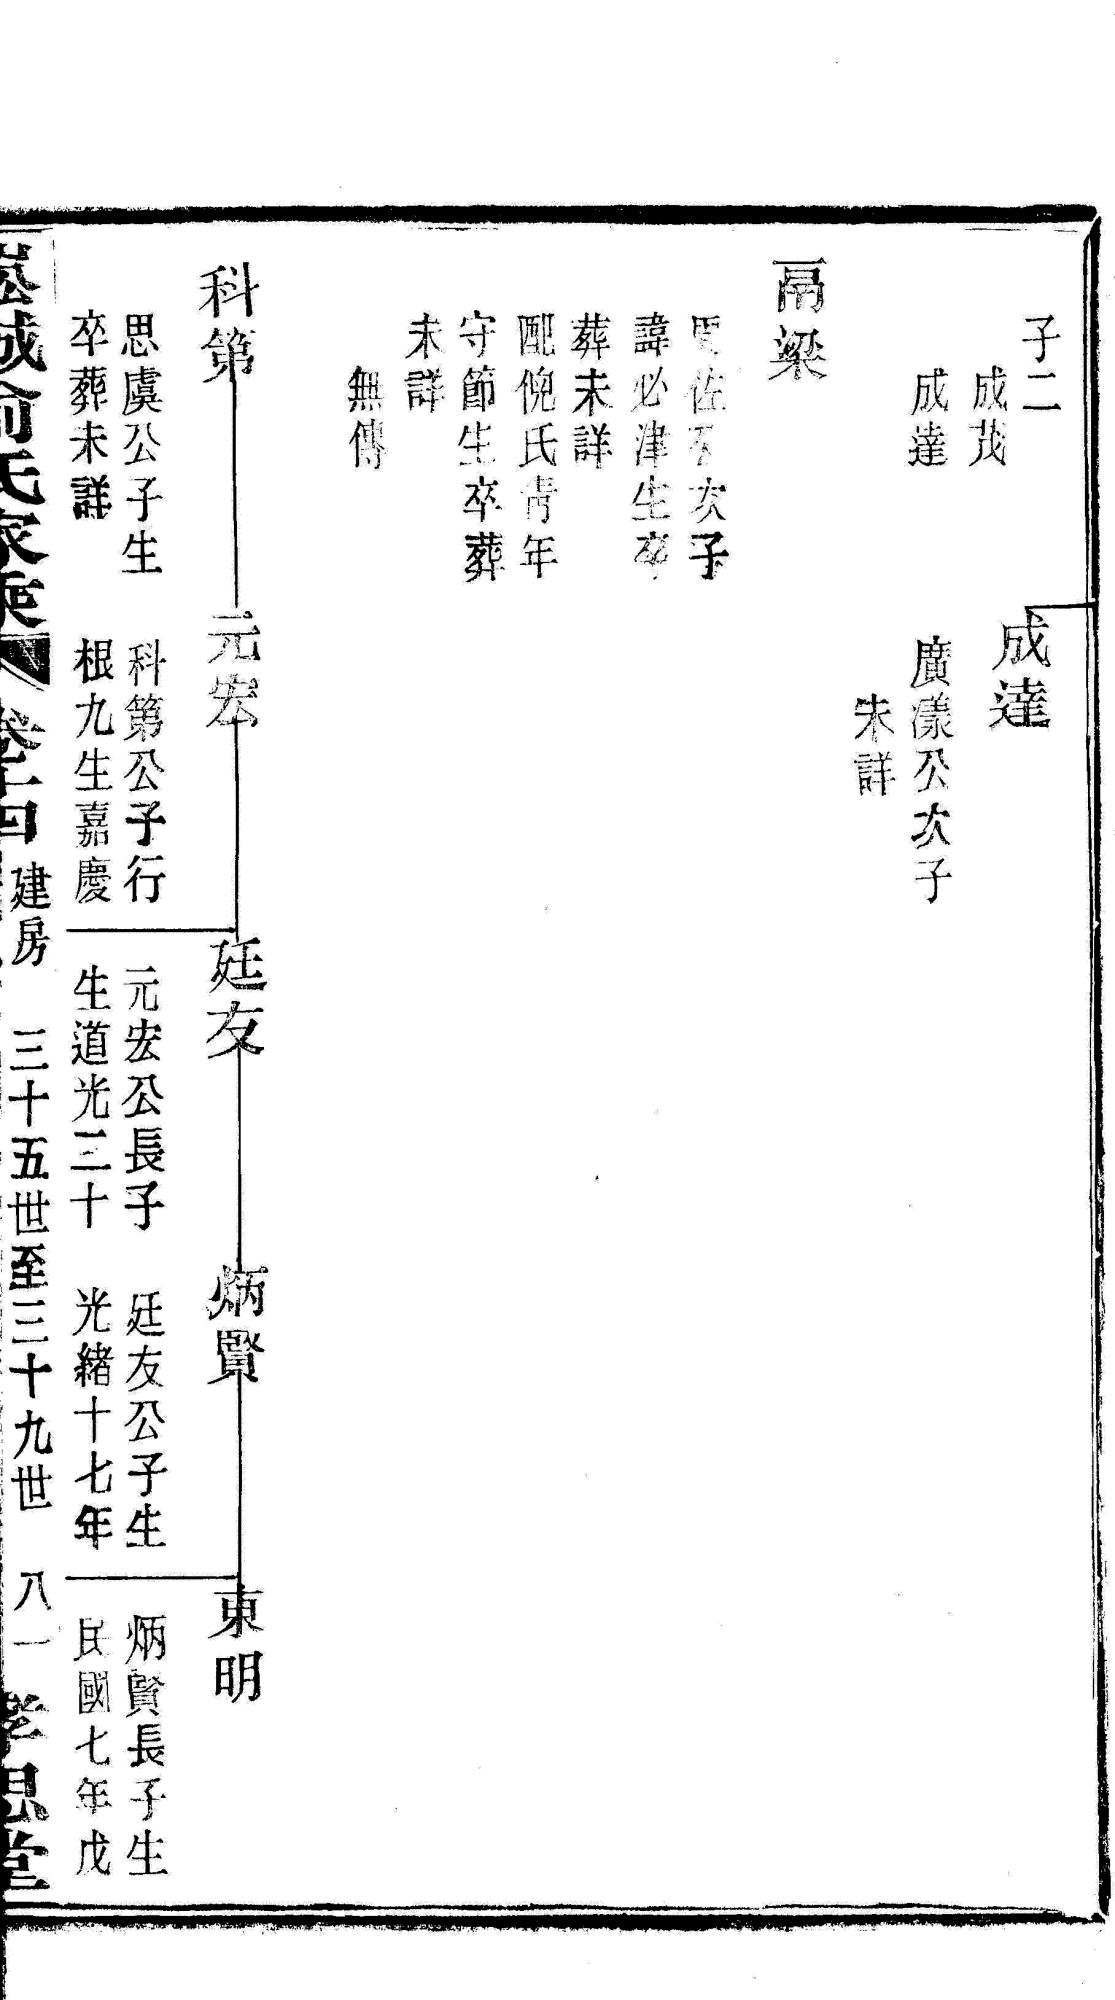 子二
成茂
成達
成達
廣漾公次子
未詳
鬲梁
佐公次子
諱必津生卒
葬未詳
配倪氏青年
守節生卒葬
未詳
無傳
科第
思虞公子生
卒葬未詳
元宏
科第公子行
根九生嘉慶
廷友
元宏公長子
生道光二十
炳賢
廷友公子生
光緒十七年
東明
炳賢長子生
民國七年戊
城俞氏家乘 卷十四 建房 三十五世至三十九世 八一 孝思堂